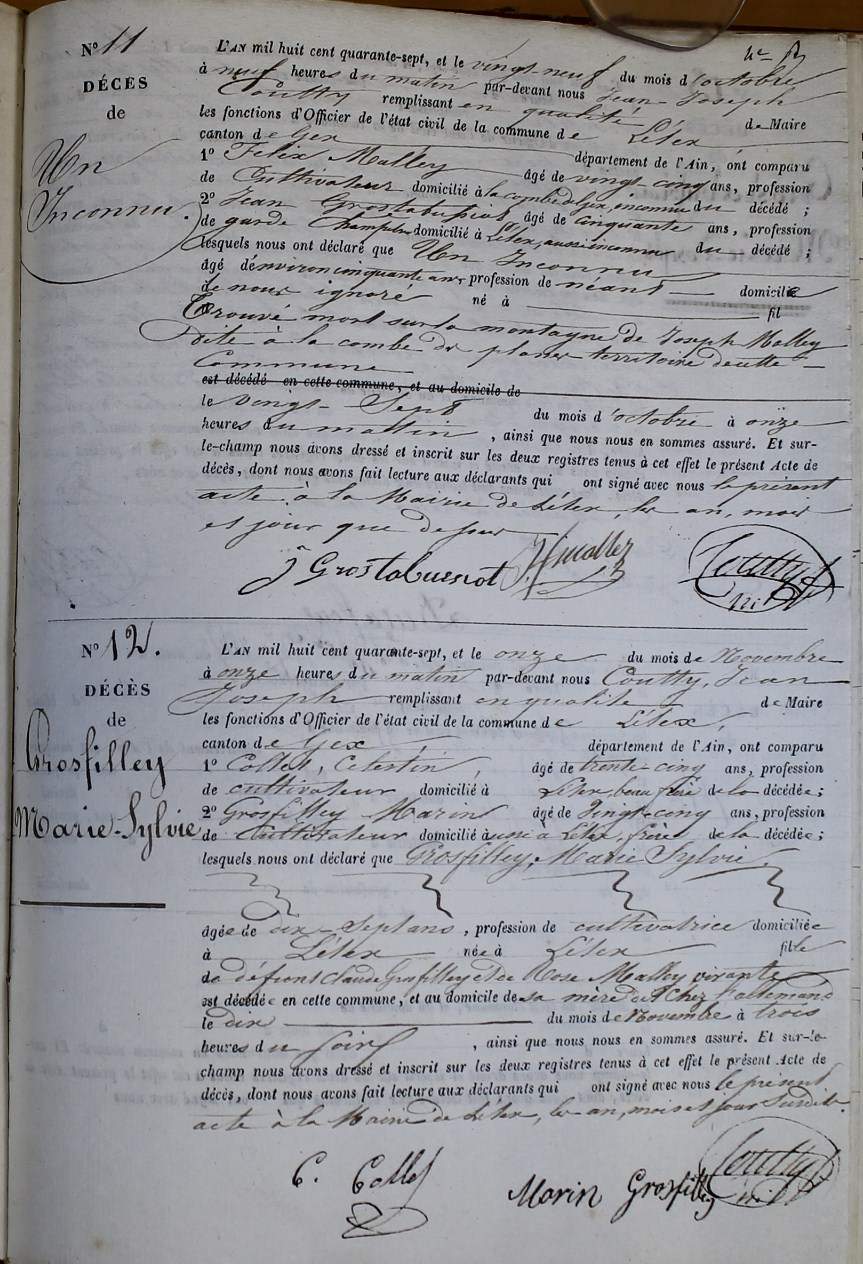 N° 11
DÉCÈS
de
Un
Inconnu.
L'AN mil huit cent quarante-sept, et le vingt-neuf du mois d'octobre
à neuf heures du matin par-devant nous Jean Joseph
Coutty remplissant en qualité de Maire
les fonctions d'Officier de l'état civil de la commune de Lélex
canton de Gex département de l'Ain, ont comparu
1° Felix Malley âgé de vingt-cinq ans, profession
de Cultivateur domicilié à la combe de Gex, inconnu du décédé ;
2° Jean Grostabussiat âgé de cinquante ans, profession
de garde Champêtre domicilié à Lélex, aussi inconnu du décédé ;
lesquels nous ont déclaré que Un Inconnu
âgé d'environ cinquante ans profession de néant domicilié
de nous ignoré né à fil
Trouvé mort sur la montagne de Joseph Malley
dite à la combe de territoire de cette
Commune
est décédé en cette commune, et au domicile de
le vingt-Sept du mois d'octobre à onze
heures du mattin , ainsi que nous nous en sommes assuré. Et sur-
le-champ nous avons dressé et inscrit sur les deux registres tenus à cet effet le présent Acte de
décès, dont nous avons fait lecture aux déclarants qui ont signé avec nous le présent
acte à la Mairie de Lélex, les an, mois
et jour que dessus
J Grostabussiat
Coutty
N° 12.
DÉCÈS
de
Grosfilley
Marie-Sylvie
L'AN mil huit cent quarante-sept, et le onze du mois de Novembre
à onze heures du matin par-devant nous Coutty, Jean
Joseph remplissant en qualité de Maire
les fonctions d'Officier de l'état civil de la commune de Lélex,
canton de Gex, département de l'Ain, ont comparu
1° Collet, Célestin, âgé de trente-cinq ans, profession
de cultivateur domicilié à Lélex, beau frère de la décédée ;
2° Grosfilley Marin âgé de Vingt-cinq ans, profession
de Cultivateur domicilié aussi à Lélex, frère de la décédée ;
lesquels nous ont déclaré que Grosfilley, Marie Sylvie,
âgée de dix-Sept ans, profession de cultivatrice domiciliée
à Lélex née à Lélex fille
de défunt Claude Grosfilley et de Rose Malley vivante
est décédée en cette commune, et au domicile de sa mère dit chez l'allemand
le dix du mois de Novembre à trois
heures du Soir , ainsi que nous nous en sommes assuré. Et sur-le-
champ nous avons dressé et inscrit sur les deux registres tenus à cet effet le présent Acte de
décès, dont nous avons fait lecture aux déclarants qui ont signé avec nous le présent
acte à la Mairie de Lélex, les an, mois et jour Susdits.
C. Collet
Marin Grosfilley
Coutty